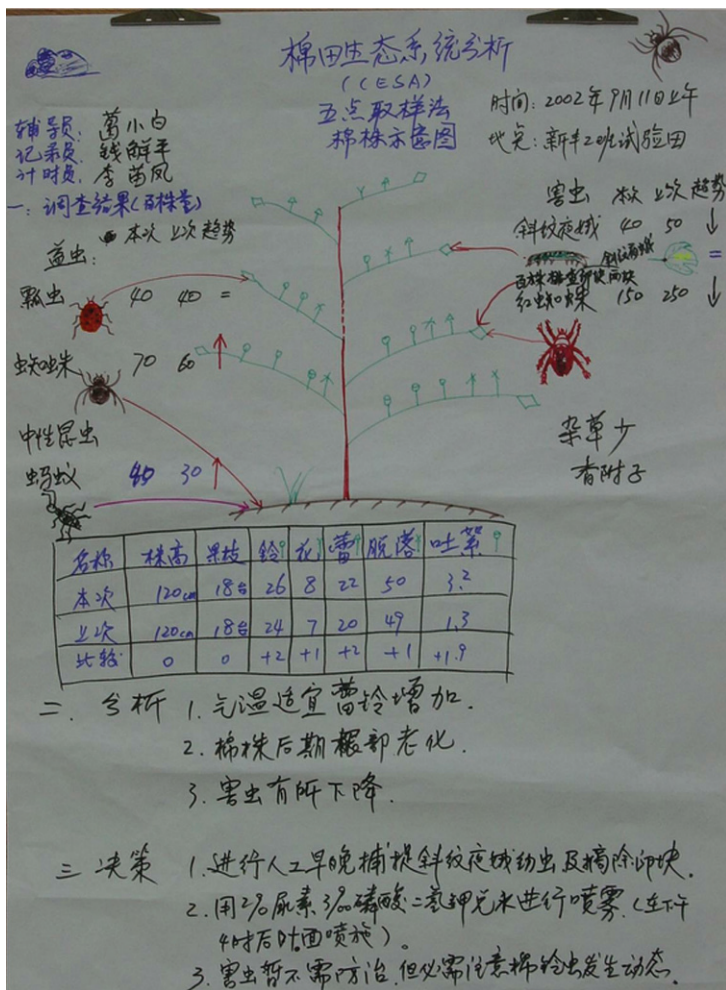 棉田生态系统分析
(CESA)
五点取样法
棉株示意图
时间:2002年9月11日上午
地点:新丰2班试验田
辅导员:葛小白
记录员:钱解平
计时员:李苗凤
一:调查结果(百株量)
本次 上次 趋势
益虫:
瓢虫 40 40 =
蜘蛛 70 60 ↑
中性昆虫
蚂蚁 40 30 ↑
害虫 本次 上次 趋势
斜纹夜蛾 40 50 ↓
百株棉查卵块两块 =
红蜘蛛 150 250 ↓
杂草少
香附子
名称 株高 果枝 铃 花 蕾 脱落 吐絮
本次 120cm 18台 26 8 22 50 3.2
上次 120cm 18台 24 7 20 49 1.3
比较 0 0 +2 +1 +2 +1 +1.9
二.分析 1.气温适宜蕾铃增加.
2.棉株后期根部老化.
3.害虫有所下降.
三 决策 1.进行人工早晚捕捉斜纹夜蛾幼虫及摘除卵块.
2.用2%尿素3‰磷酸二氢钾兑水进行喷雾.(在下午
4时后叶面喷施)。
3.害虫暂不需防治.但必需注意棉铃虫发生动态.